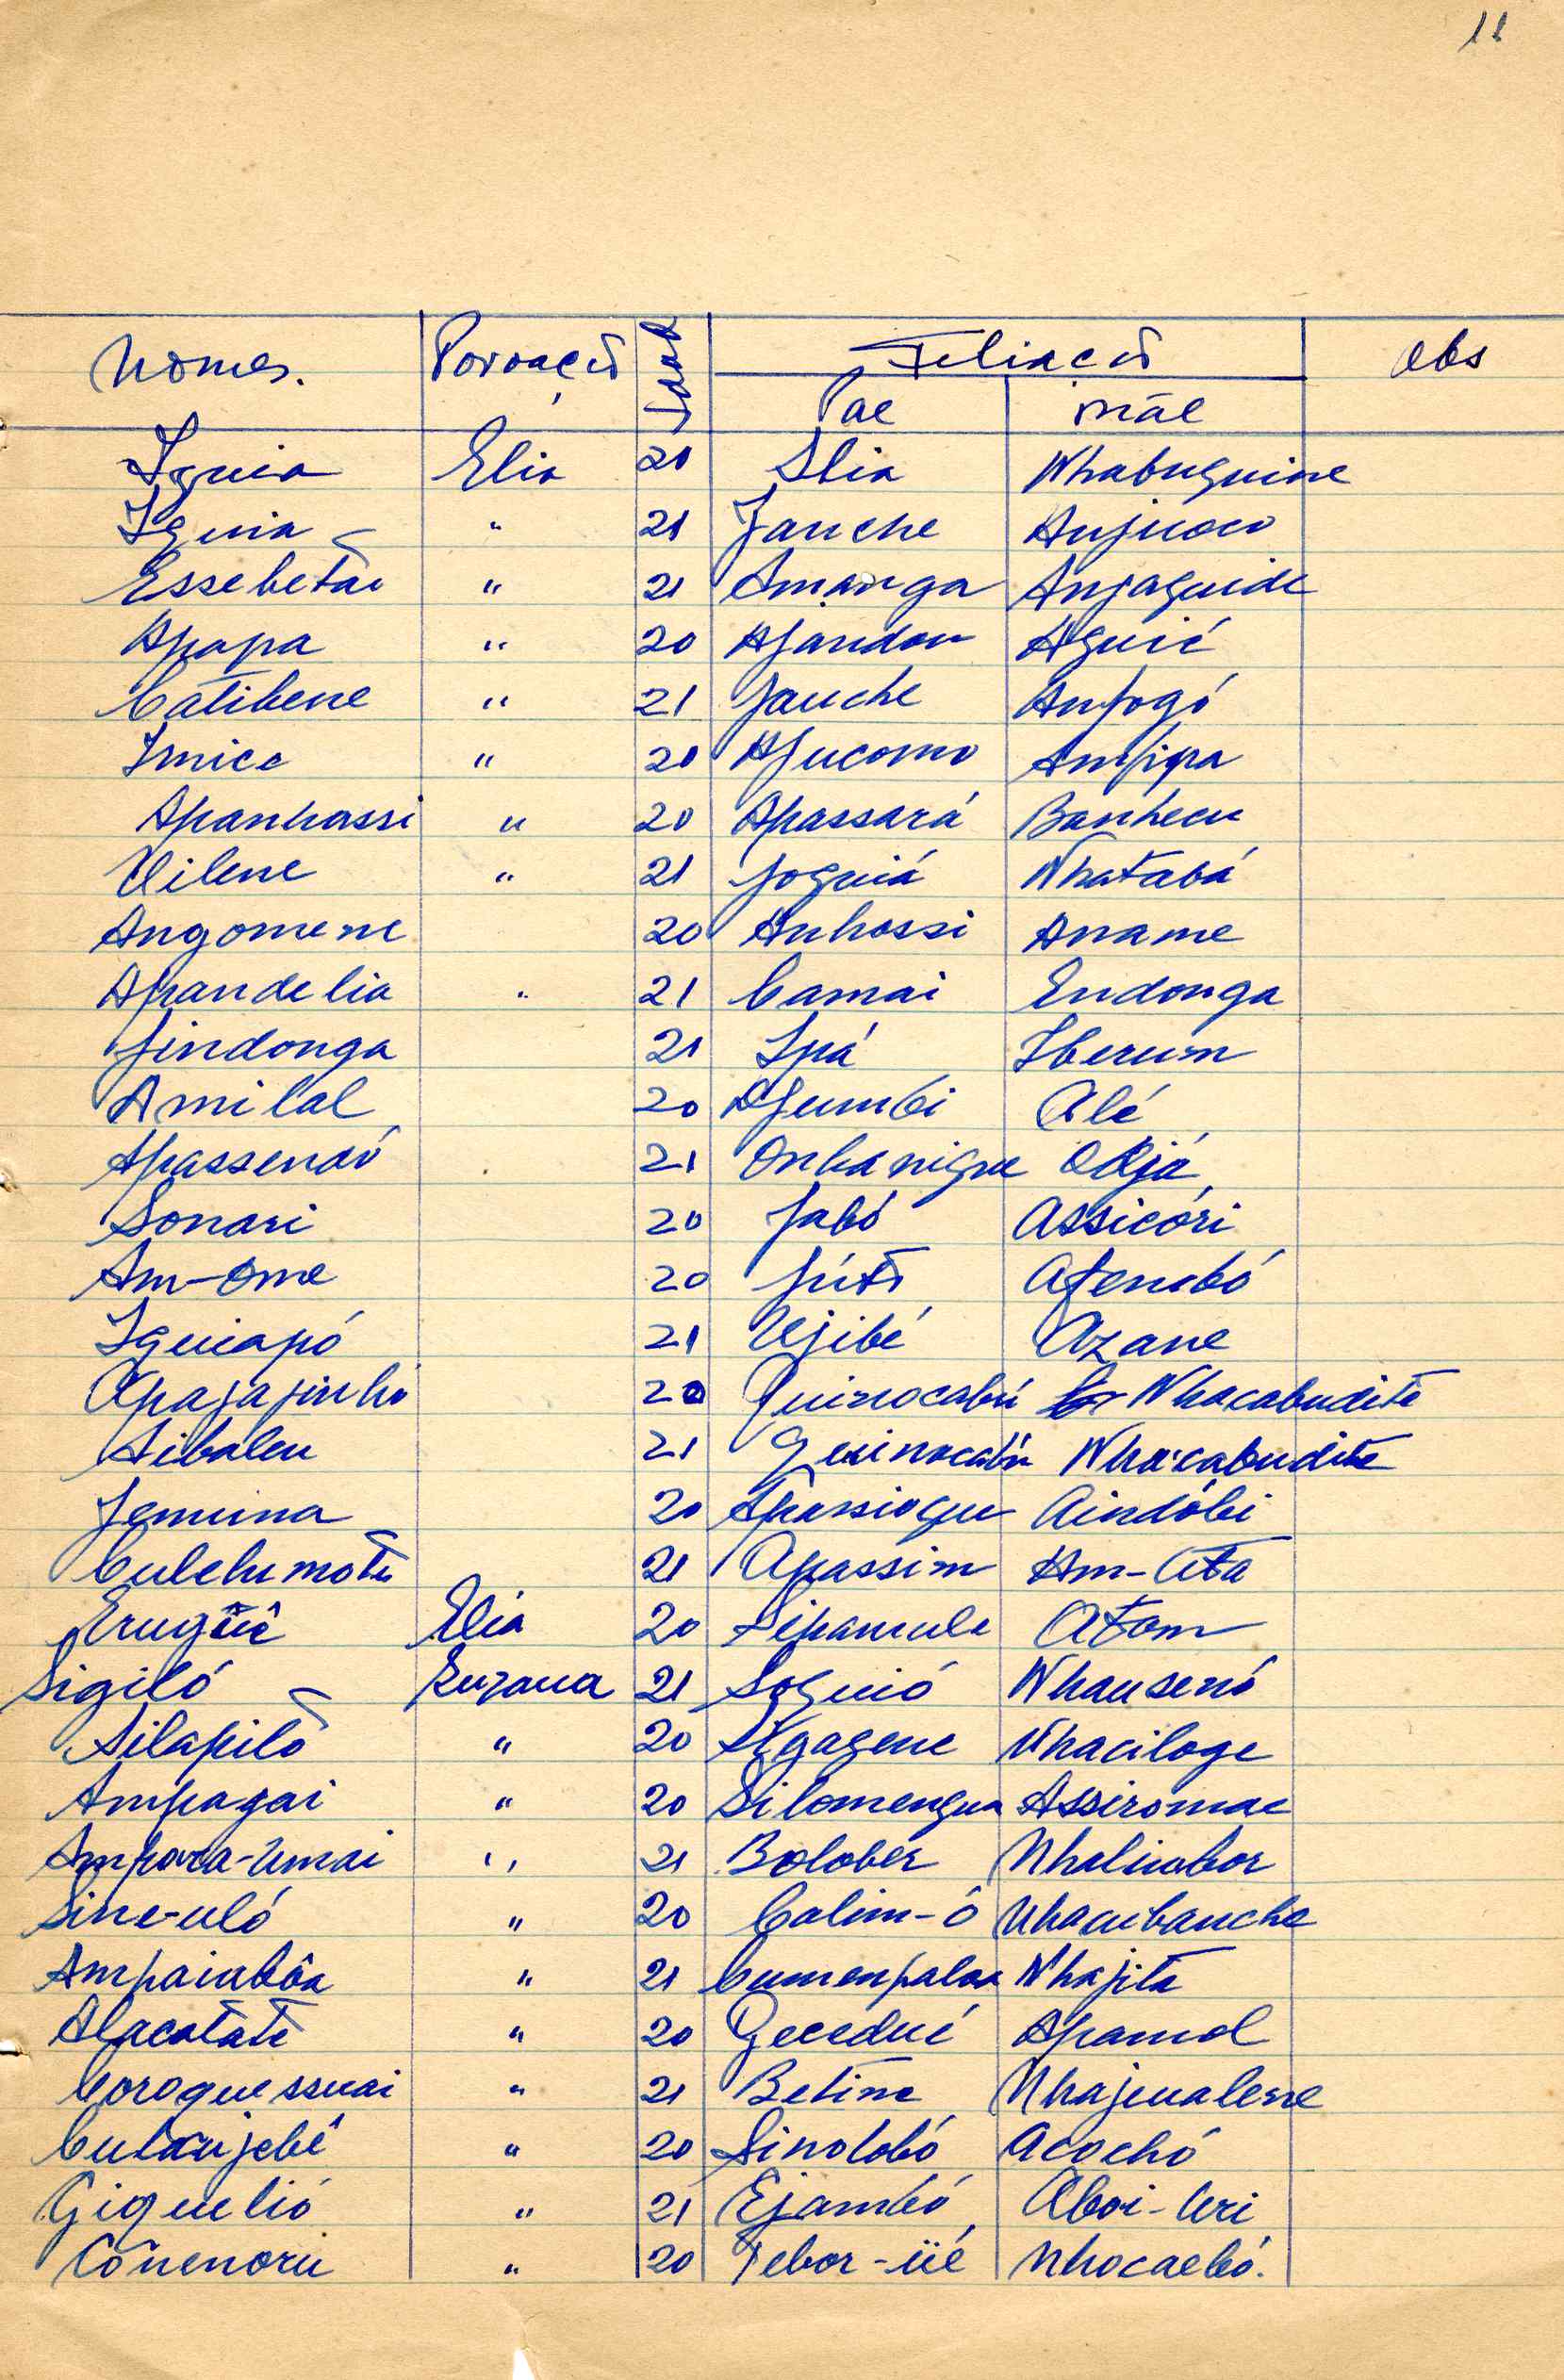 11
Nomes. Povoação Idade Filiação Obs
Pae Mãe
Iguia Elia 20 Slia Nhabuguine
Iguia " 21 Janche Anjucoco
Essebetai " 21 Amanga Anjaguide
Apapa " 20 Ajandou Aguié
Catibene " 21 Jauche Anjogó
Imice " 20 Ajucomo Ampipa
Apanhassi " 20 Apassará Banhecu
Uilene " 21 Joguiá Nhatabá
Angomene 20 Anhossi Aname
Apandelia " 21 Camai Endonga
Jindonga 21 Ipá Iberum
Amilal 20 Ajumbi Alé
Apassendó 21 Onbanigue
Sonari 20 Jabó Assicóri
Am-Ome 20 Júti Afembó
Iguiapó 21 Ujibé Azane
Apajajinho 20 Quinocabú Nhacabudite
Aibaleu 21 Quinocabú Nhacabudite
Jemuina 20 Apassiogu Aindóbi
Culelumotu 21 Apassim Am-Ata
Erugûê Elia 20 Sipamule Atom
Sigiló Euzana 21 Soguió Nhausenó
Silapito " 20 Agagene Nhaciloge
Ampagai " 20 Silomengua Assiromae
Ampora-Umai " 21 Bolober Nhaliubor
Sine-uló " 20 Calim-ó Nhacubanche
Ampaiubôa " 21 Cumenpaloa Nhajita
Alacatate " 20 Gecedué Apamol
Coroquessuai " 21 Betine Nhajeualene
Cutaujebê " 20 Sinotobó Acochó
Giguelió " 21 Ejambó Aboi-Uri
Cônenoru " 20 Tebor-üé Nhocaebó.